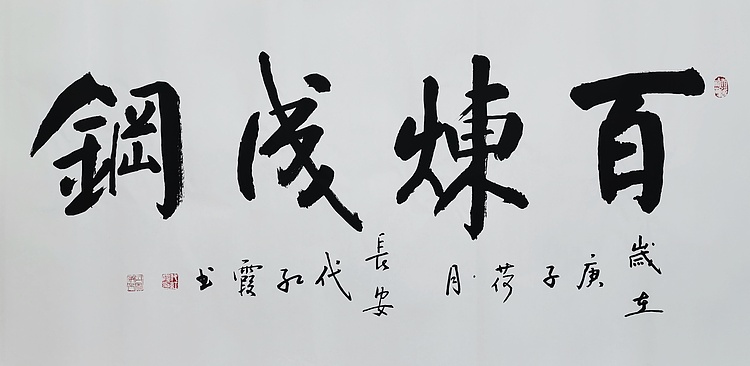 百煉成鋼
歲在庚子荷月長安代紅霞书